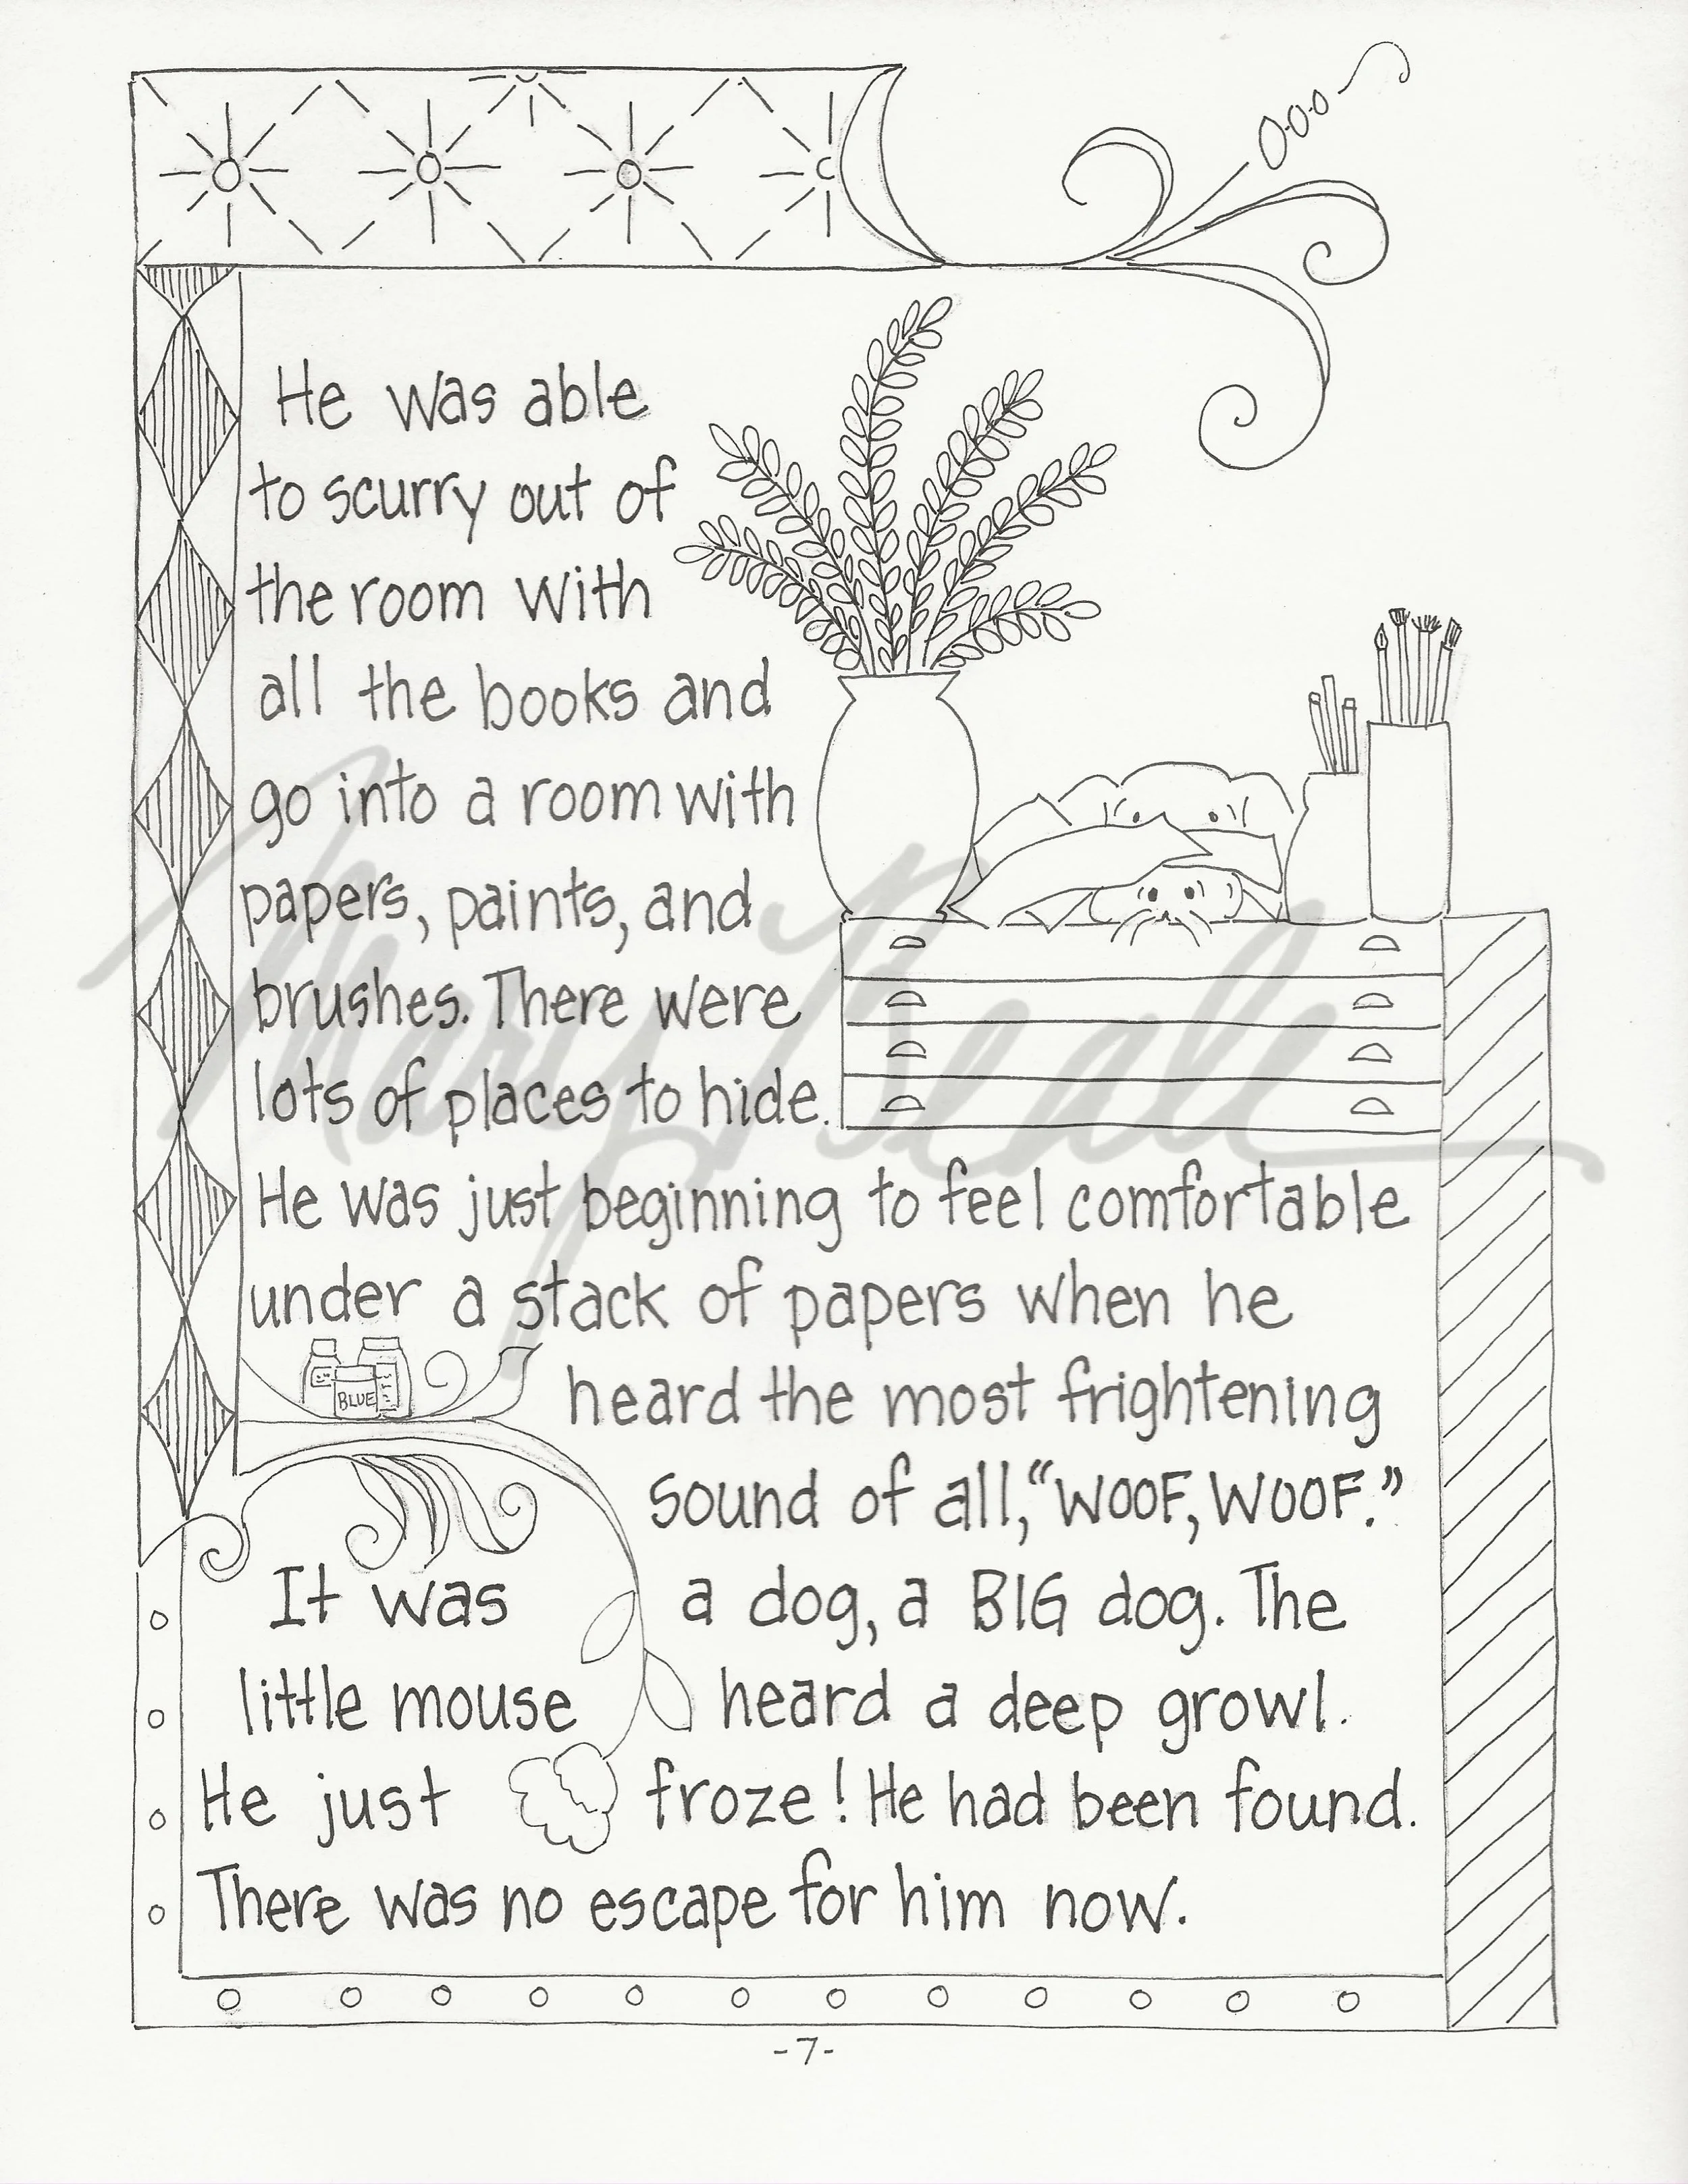 He was able
to scurry out of
the room with
all the books and
go into a room with
papers, paints, and
brushes. There were
lots of places to hide.
He was just beginning to feel comfortable
under a stack of papers when he
BLUE
heard the most frightening
sound of all, “WOOF, WOOF.”
It was a dog, a BIG dog. The
little mouse heard a deep growl.
He just froze! He had been found.
There was no escape for him now.
-7-
Mary Beale